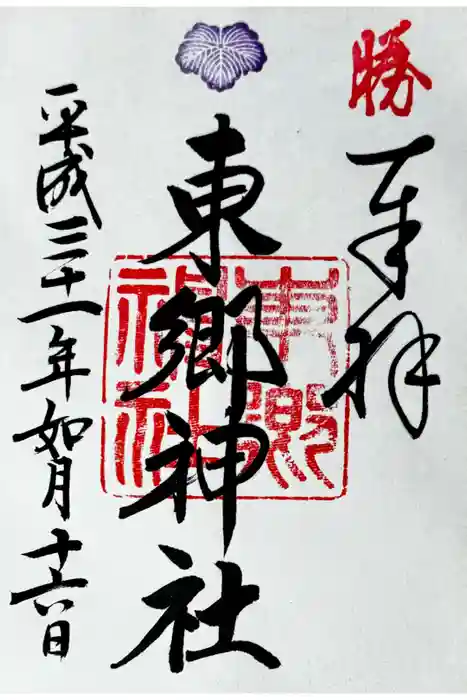 勝
奉拝
東郷神社
東郷神社
平成三十一年如月十六日